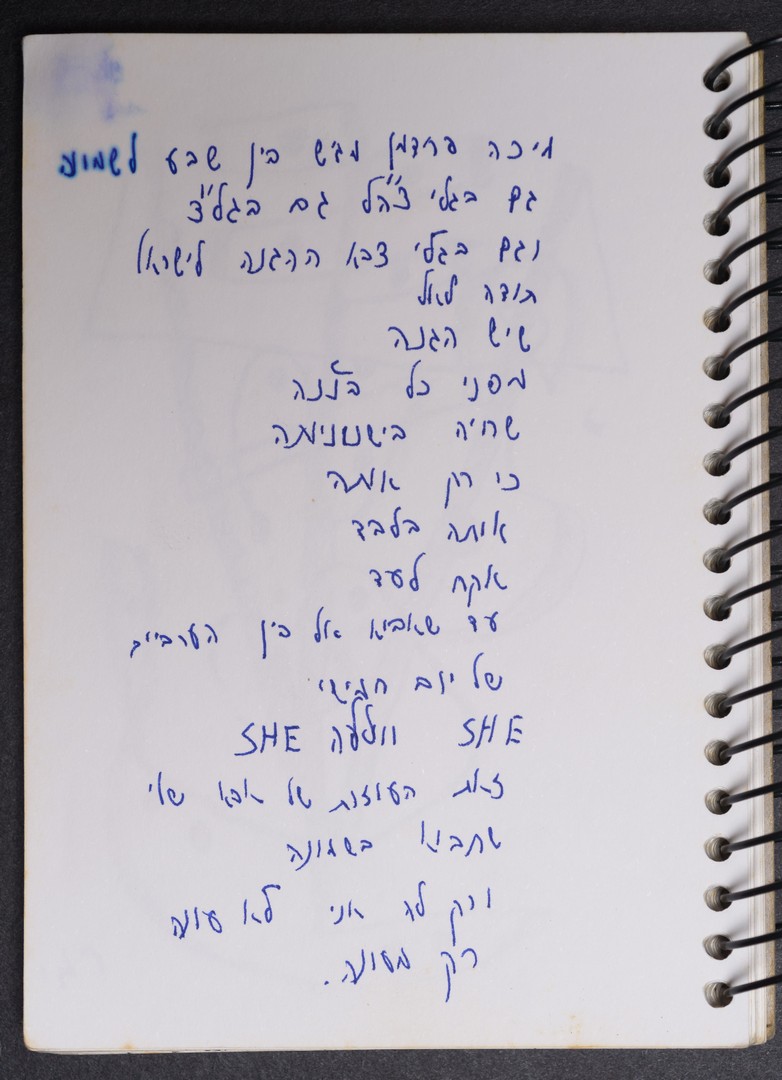 מיכה פרידמן מגיש בין שבע לשמונ
גם בגלי צה"ל גם בגל"צ
וגם בגלי צבא ההגנה לישראל
תודה לאל
שיש הגנה
מפני כל בננה
שחיה בישנוניותה
כי רק אותה
אותה בלבד
אקח לעד
עד שאביא אל בין הערביים
של יום חמישי
SHE וולעה SHE
זאת העוזרת של אבא שלי
שתביא בשמונה
ורק לה אני לא עונה
רק מעונה.